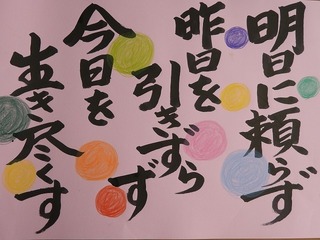 明日に頼らず
昨日を
引きずらず
今日を
生き尽くす